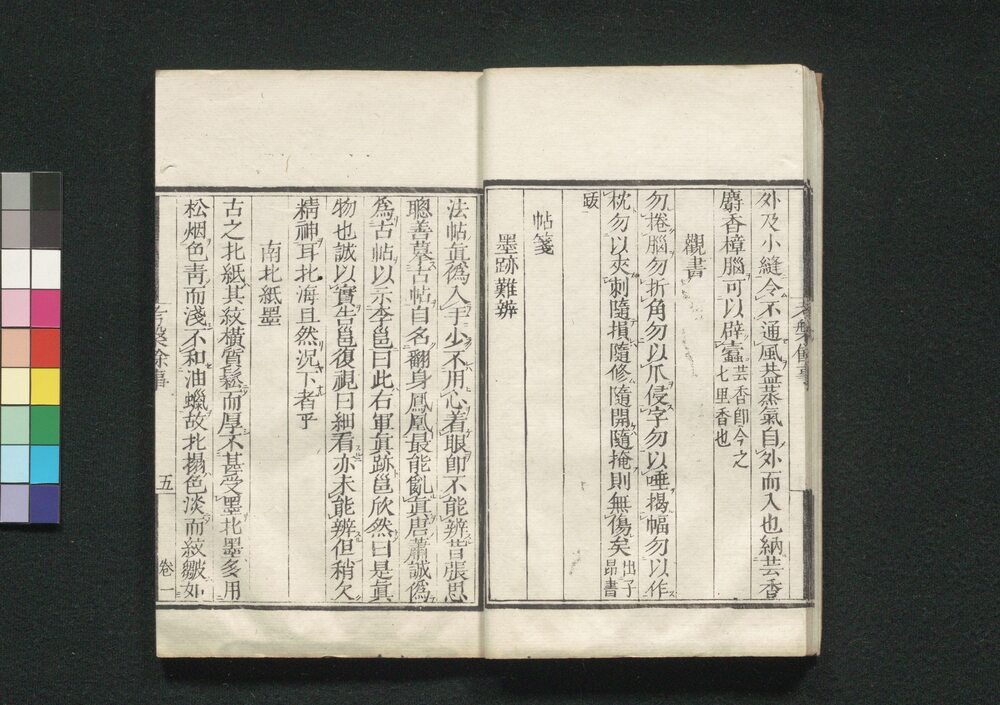 外及小縫令不通風葢蒸氣自外而入也納芸香
麝香樟腦可以辟蠹芸香卽今之
七里香也
觀書
勿捲腦勿折角勿以爪侵字勿以唾揭幅勿以作
枕勿以夾刺隨損隨修隨開隨掩則無傷矣出子
昻書
跋
帖箋
墨跡難辨
法帖眞僞入手少不用心着眼卽不能辨昔張思
聰善摹古帖自名翻身鳳凰最能亂眞唐蕭誠僞
爲古帖以示李邕曰此右軍眞跡邕欣然曰是眞
物也誠以實告邕復視曰細看亦未能辨但稍欠
精神耳北海且然況下者乎
南北紙墨
古之北紙其紋橫質鬆而厚不甚受墨北墨多用
松烟色靑而淺不和油蠟故北搨色淡而紋皺如
考槃餘事
五
卷一